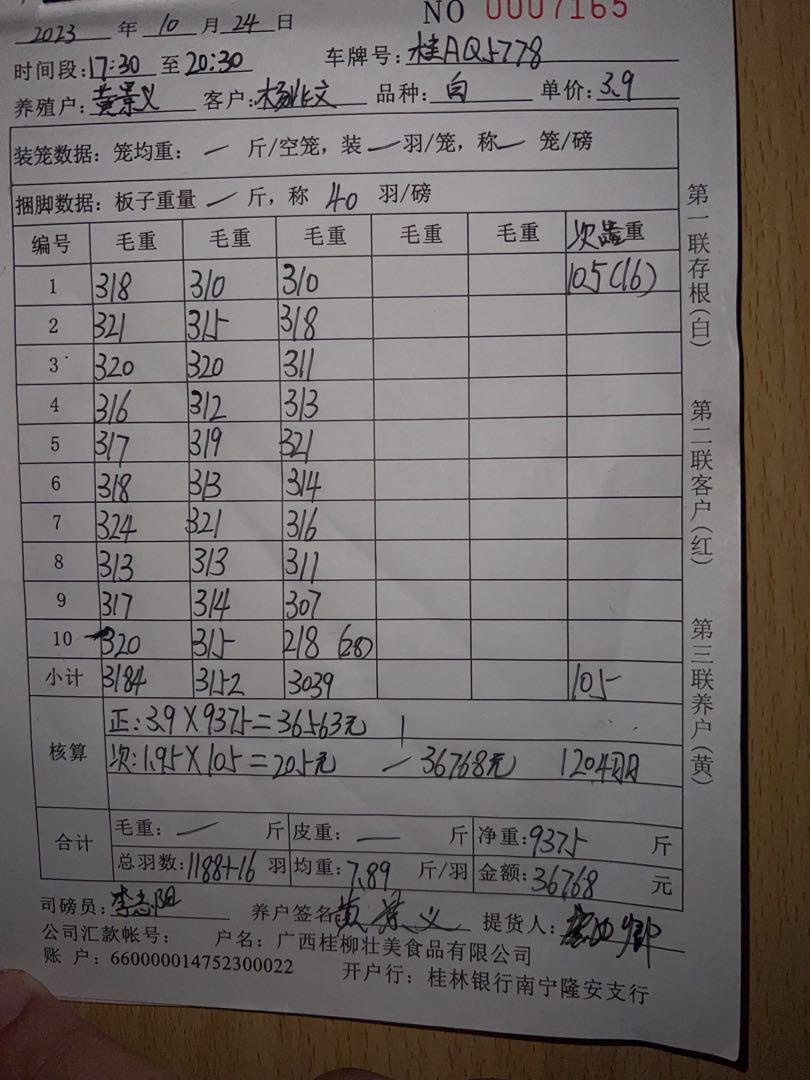 NO 0007165
2023 年 10 月 24 日
时间段:17:30 至 20:30 车牌号:桂AQ5778
养殖户:黄景义 客户:杨业文 品种:白 单价:3.9
装笼数据:笼均重: — 斤/空笼,装 — 羽/笼,称 — 笼/磅
捆脚数据:板子重量 — 斤,称 40 羽/磅
编号 毛重 毛重 毛重 毛重 毛重 次品重
1 318 310 310 105(16)
2 321 315 318
3 320 320 311
4 316 312 313
5 317 319 321
6 318 313 314
7 324 321 316
8 313 313 311
9 317 314 307
10 320 315 218 (28)
小计 3184 3152 3039 105
核算
正:3.9×9375=36563元
次:1.95×105=205元 — 36768元 1204羽
合计
毛重: — 斤 皮重: — 斤 净重:9375 斤
总羽数:1188+16 羽 均重:7.89 斤/羽 金额:36768 元
司磅员:李志阳 养户签名 黄景义 提货人:
公司汇款帐号: 户名:广西桂柳壮美食品有限公司
账户:660000014752300022 开户行:桂林银行南宁隆安支行
第一联存根(白)
第二联客户(红)
第三联养户(黄)